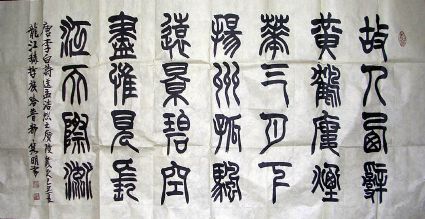 故人西辭
黃鶴樓煙
華三月下
揚州孤颿
遠景碧空
盡惟見長
江天際流
唐李白詩送孟浩然之廣陵
龍江